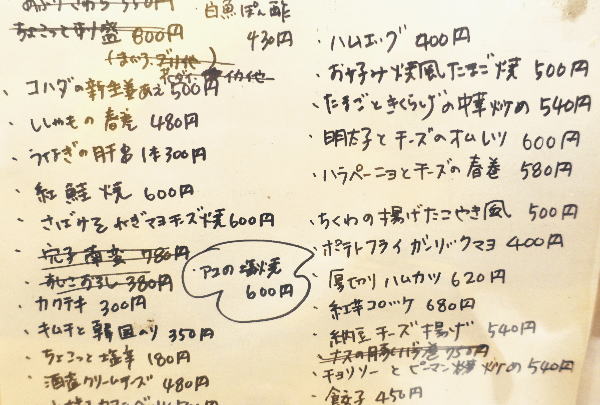 白魚ぽん酢
430円
ちょこっと刺し盛 800円
(まぐろ、
イカ他
コハダの新生姜あえ 500円
ししゃもの 春巻 480円
うなぎの肝串 1本300円
紅鮭焼 600円
さばみそ ねぎマヨチーズ焼 600円
穴子 南蛮 780円
おろし 380円
アユの 塩焼
600円
カクテキ 300円
キムチと韓国のり 350円
ちょこっと塩辛 180円
酒盗クリームチーズ 480円
・ハムエッグ 400円
・お好み焼風たまご焼 500円
・たまごときくらげの中華炒め 540円
・明太子とチーズのオムレツ 600円
・ハラペーニョとチーズの 春巻 580円
・ちくわの揚げたこやき風 500円
・ポテトフライ ガーリックマヨ 400円
・厚切りハムカツ 620円
・紅芋コロッケ 680円
・納豆チーズ揚げ 540円
・ナスの豚バラ巻 750円
・チョリソーとピーマン 炒め 540円
・餃子 450円